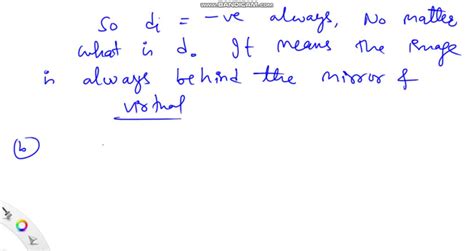 WWW.BANDICAM.COM
So di = -ve always, No matter
what is do. It means the image
is always behind the mirror &
virtual
b